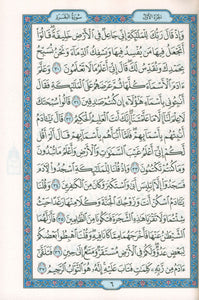 الجزء الأول سورة البقرة
وَإِذْ قَالَ رَبُّكَ لِلْمَلَٰٓئِكَةِ إِنِّى جَاعِلٌ فِى ٱلْأَرْضِ خَلِيفَةً قَالُوٓا۟
أَتَجْعَلُ فِيهَا مَن يُفْسِدُ فِيهَا وَيَسْفِكُ ٱلدِّمَآءَ وَنَحْنُ نُسَبِّحُ
بِحَمْدِكَ وَنُقَدِّسُ لَكَ قَالَ إِنِّىٓ أَعْلَمُ مَا لَا تَعْلَمُونَ ٣٠ وَعَلَّمَ
ءَادَمَ ٱلْأَسْمَآءَ كُلَّهَا ثُمَّ عَرَضَهُمْ عَلَى ٱلْمَلَٰٓئِكَةِ فَقَالَ أَنۢبِـُٔونِى
بِأَسْمَآءِ هَٰٓؤُلَآءِ إِن كُنتُمْ صَٰدِقِينَ ٣١ قَالُوا۟ سُبْحَٰنَكَ لَا عِلْمَ لَنَآ
إِلَّا مَا عَلَّمْتَنَآ إِنَّكَ أَنتَ ٱلْعَلِيمُ ٱلْحَكِيمُ ٣٢ قَالَ يَٰٓـَٔادَمُ أَنۢبِئْهُم
بِأَسْمَآئِهِمْ فَلَمَّآ أَنۢبَأَهُم بِأَسْمَآئِهِمْ قَالَ أَلَمْ أَقُل لَّكُمْ
إِنِّىٓ أَعْلَمُ غَيْبَ ٱلسَّمَٰوَٰتِ وَٱلْأَرْضِ وَأَعْلَمُ مَا تُبْدُونَ
وَمَا كُنتُمْ تَكْتُمُونَ ٣٣ وَإِذْ قُلْنَا لِلْمَلَٰٓئِكَةِ ٱسْجُدُوا۟ لِـَٔادَمَ
فَسَجَدُوٓا۟ إِلَّآ إِبْلِيسَ أَبَىٰ وَٱسْتَكْبَرَ وَكَانَ مِنَ ٱلْكَٰفِرِينَ ٣٤ وَقُلْنَا
يَٰٓـَٔادَمُ ٱسْكُنْ أَنتَ وَزَوْجُكَ ٱلْجَنَّةَ وَكُلَا مِنْهَا رَغَدًا حَيْثُ
شِئْتُمَا وَلَا تَقْرَبَا هَٰذِهِ ٱلشَّجَرَةَ فَتَكُونَا مِنَ ٱلظَّٰلِمِينَ ٣٥ فَأَزَلَّهُمَا
ٱلشَّيْطَٰنُ عَنْهَا فَأَخْرَجَهُمَا مِمَّا كَانَا فِيهِ وَقُلْنَا ٱهْبِطُوا۟ بَعْضُكُمْ
لِبَعْضٍ عَدُوٌّ وَلَكُمْ فِى ٱلْأَرْضِ مُسْتَقَرٌّ وَمَتَٰعٌ إِلَىٰ حِينٍ ٣٦ فَتَلَقَّىٰٓ
ءَادَمُ مِن رَّبِّهِۦ كَلِمَٰتٍ فَتَابَ عَلَيْهِ إِنَّهُۥ هُوَ ٱلتَّوَّابُ ٱلرَّحِيمُ ٣٧
٦